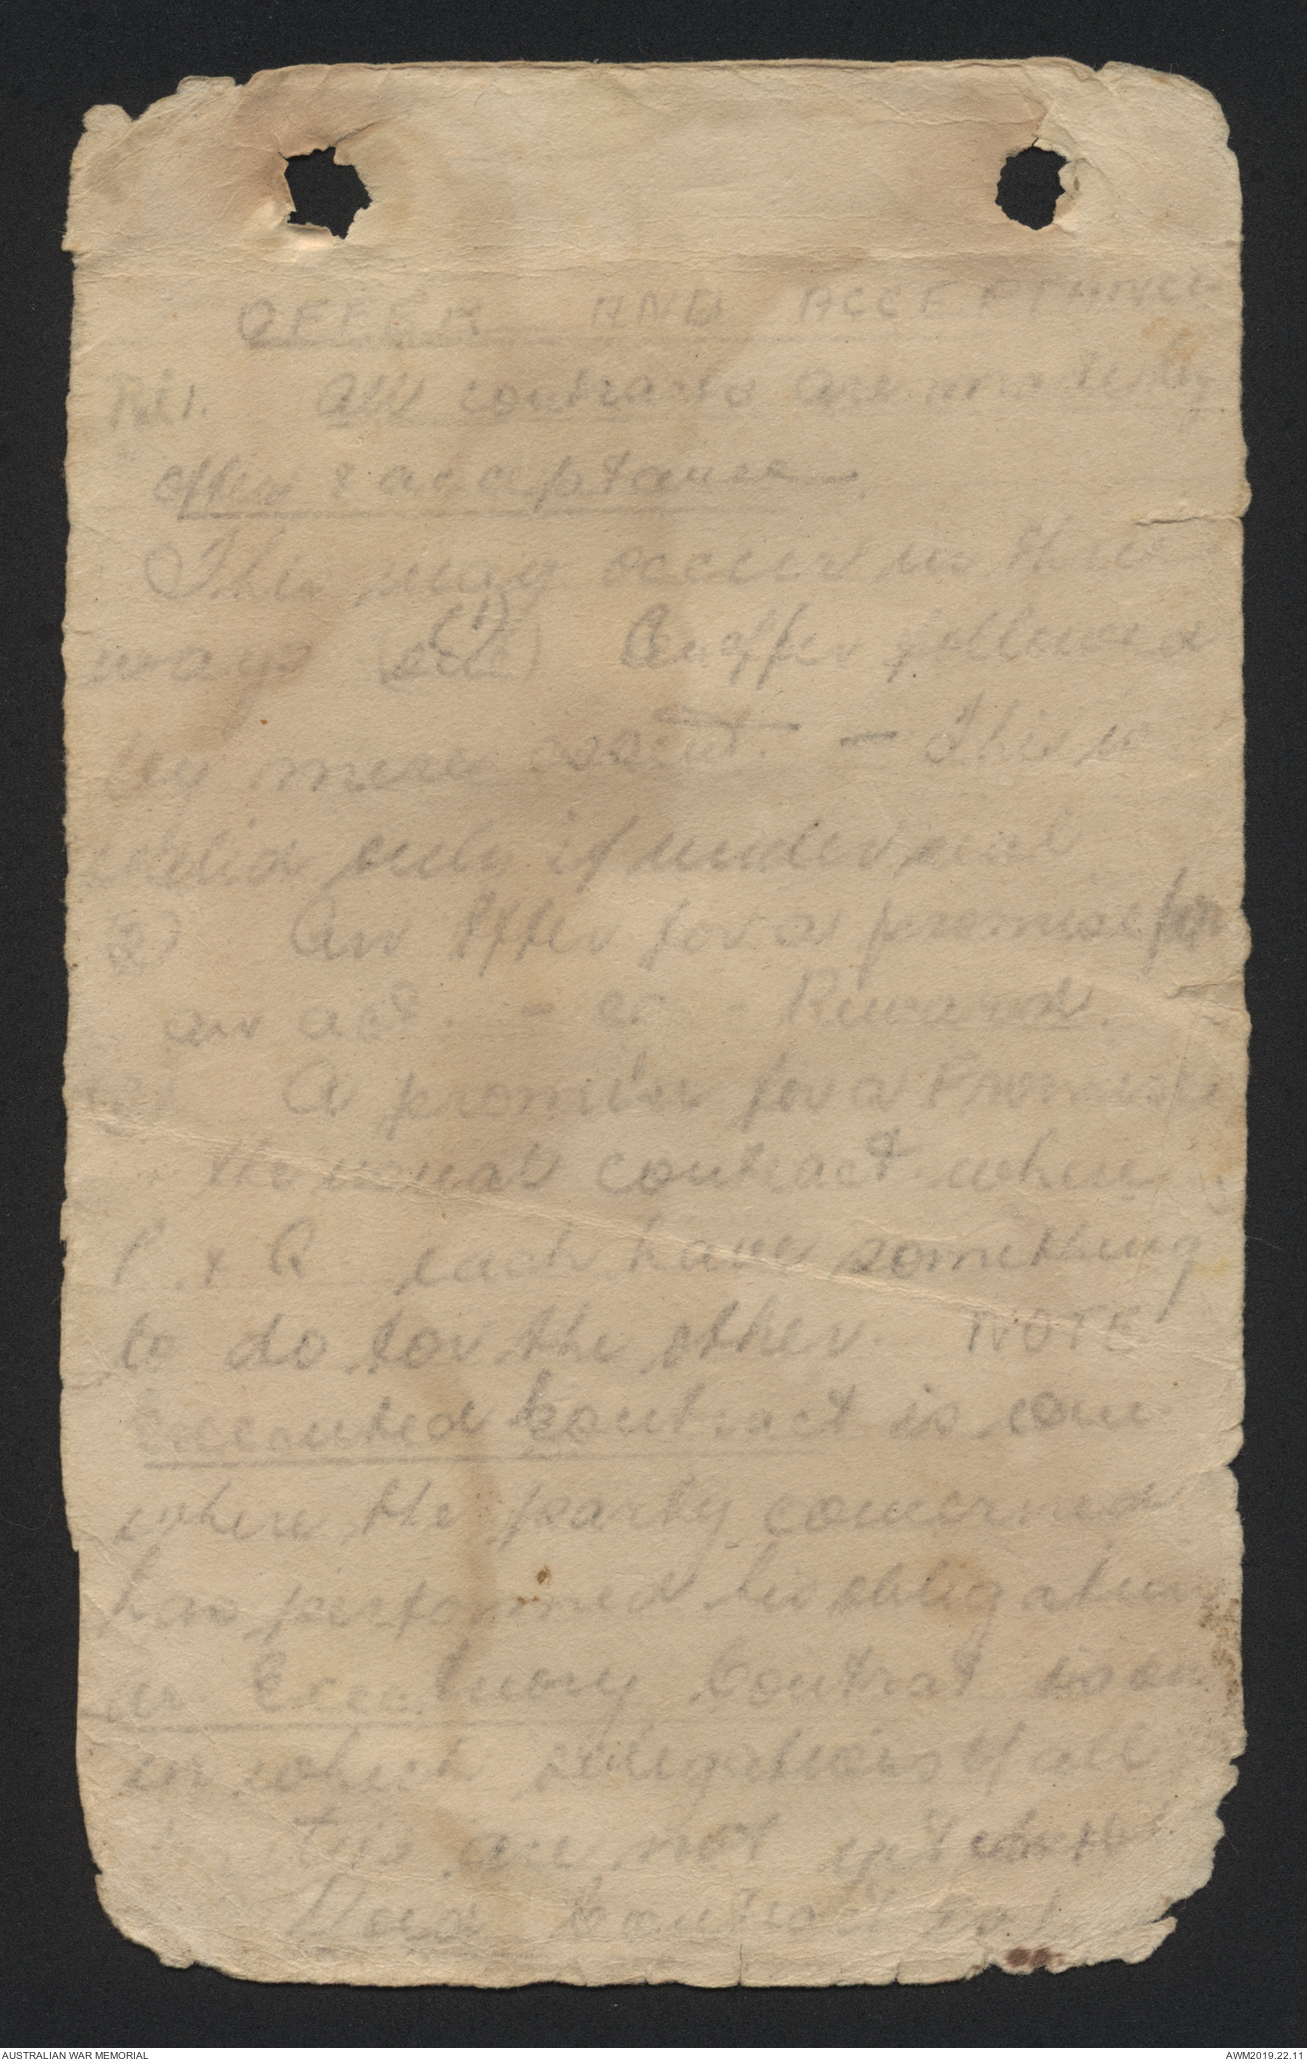 OFFER AND ACCEPTANCE
All contracts are made by
offer & acceptance
This may occur in three
ways (1) An offer followed
by mere assent. - This is
valid only if under seal
(2) An Offer for a promise for
an act. - eg - Reward.
(3) A promise for a Promise
the usual contract where
P & Q each have something
to do for the other. NOTE
Executed Contract is one
where the party concerned
has performed his obligation
an Executory Contract is one
in which obligations of all
parties are not yet
Void Contract
AUSTRALIAN WAR MEMORIAL
AWM2019.22.11